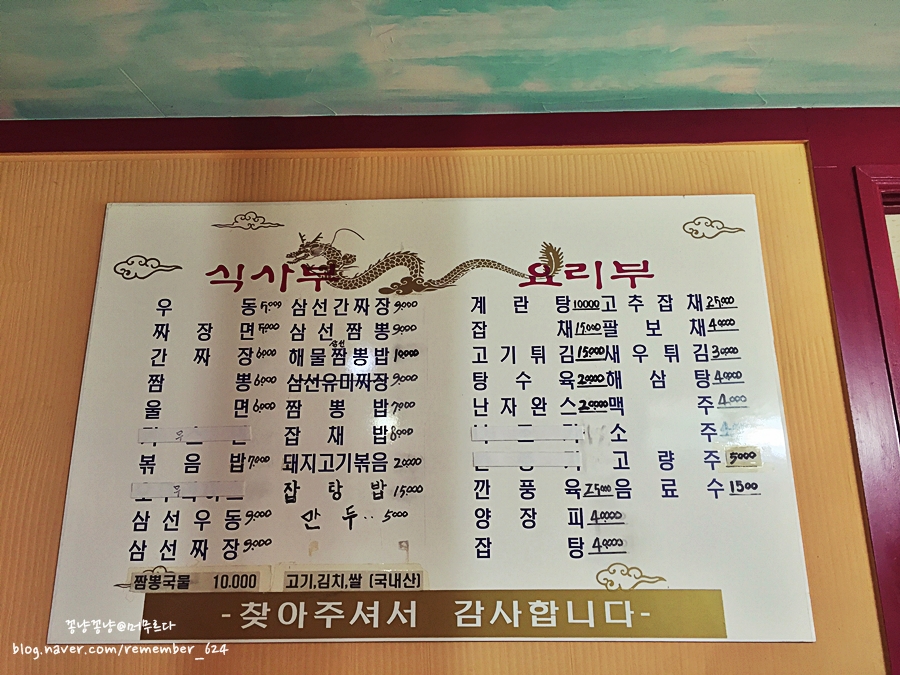 식사부 요리부
우동 5,000 삼선간짜장 9,000
짜장면 5,000 삼선짬뽕 9,000
간짜장 6,000 해물짬뽕밥 10,000
삼선
짬뽕 6,000 삼선유미짜장 9,000
울면 6,000 짬뽕밥 7,000
잡채밥 8,000
볶음밥 7,000 돼지고기볶음 20,000
잡탕밥 15,000
삼선우동 9,000 만두.. 5,000
삼선짜장 9,000
짬뽕국물 10.000 고기,김치,쌀 (국내산)
계란탕 10000 고추잡채 25,000
잡채 15,000 팔보채
고기튀김 15,000 새우튀김
탕수육 20,000 해삼탕
난자완스 20,000 맥주 4,000
소주
고량주 5000
깐풍육 25,000 음료수 1500
양장피 40,000
잡탕 40,000
-찾아주셔서 감사합니다-
꽁냥꽁냥@머무르다
blog.naver.com/remember_624